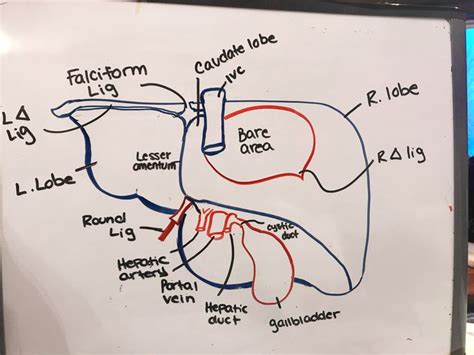 Caudate lobe
IVC
Falciform
Lig
R. lobe
L Δ
Lig
Bare
area
Lesser
omentum
R Δ lig
L. Lobe
Round
Lig
cystic
duct
Hepatic
artery
Portal
vein
Hepatic
duct
gallbladder